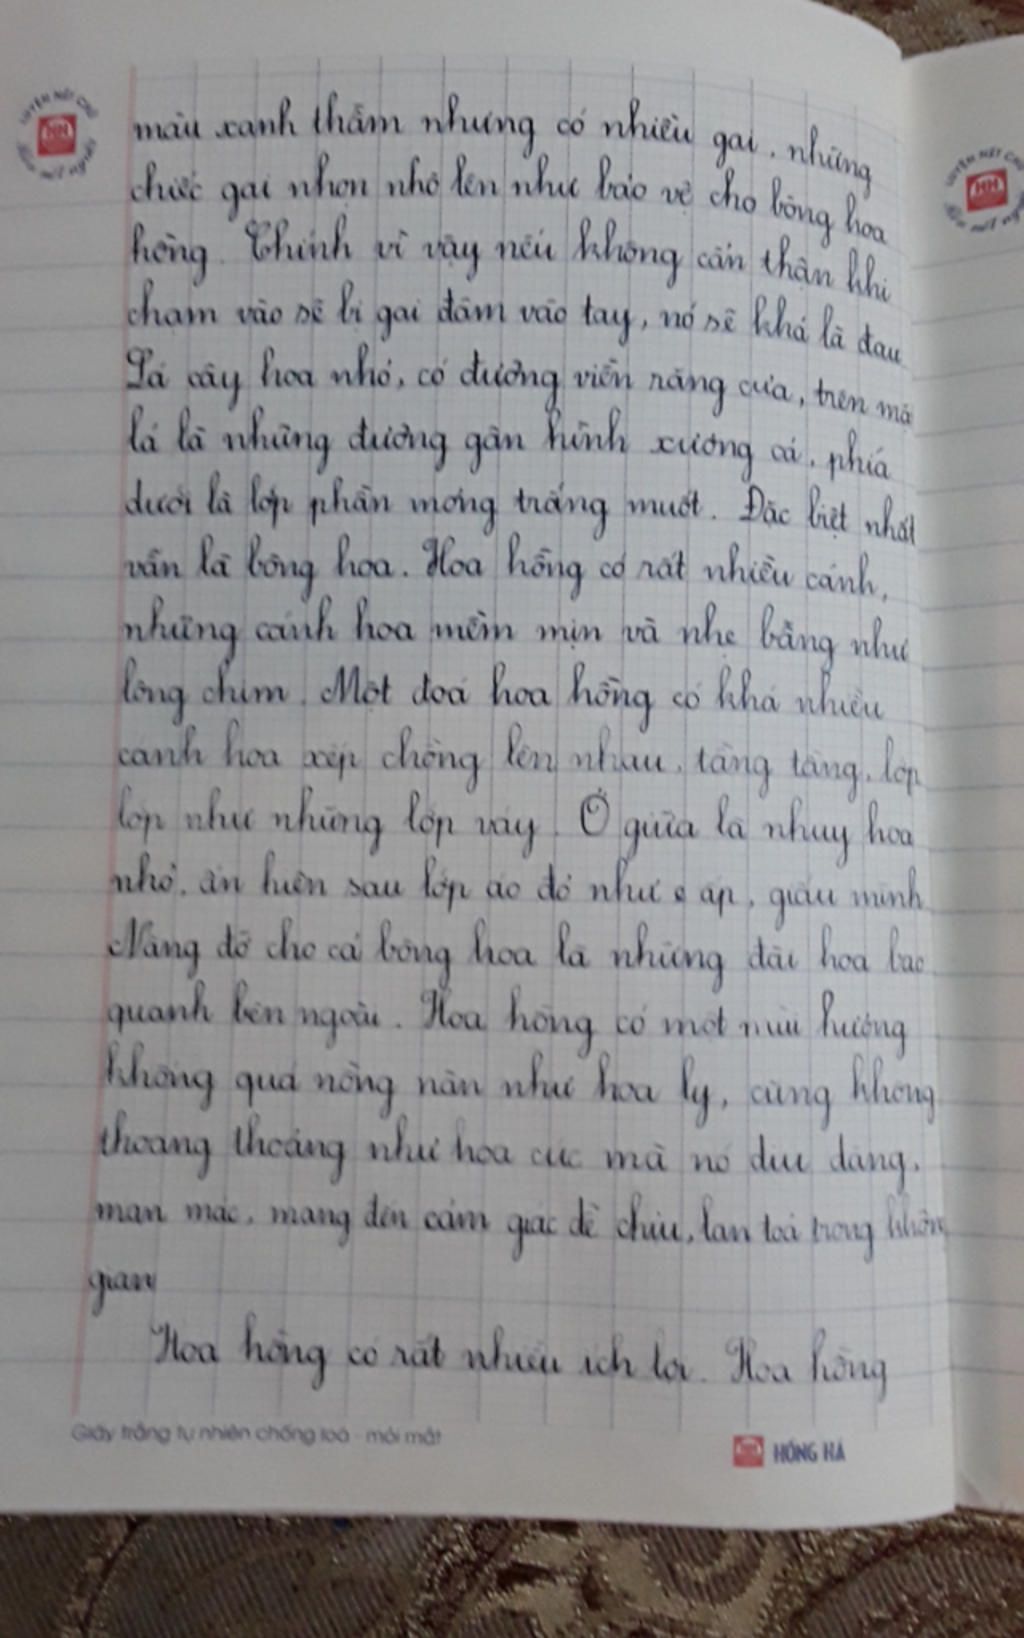 LUYỆN NÉT CHỮ
HH
màu xanh thẫm nhưng có nhiều gai, những
chiếc gai nhọn nhô lên như bảo vệ cho bông hoa
hồng. Chính vì vậy nếu không cẩn thận khi
chạm vào sẽ bị gai đâm vào tay, nó sẽ khá là đau
Lá cây hoa nhỏ, có đường viền răng cưa, trên mặ
lá là những đường gân hình xương cá, phía
dưới là lớp phấn mỏng trắng muốt. Đặc biệt nhất
vẫn là bông hoa. Hoa hồng có rất nhiều cánh,
những cánh hoa mềm mịn và nhẹ bẫng như
lông chim. Một đoá hoa hồng có khá nhiều
cánh hoa xếp chồng lên nhau, tầng tầng, lớp
lớp như những lớp váy. Ở giữa là nhuỵ hoa
nhỏ, ẩn hiện sau lớp áo đỏ như e ấp, giấu mình
Nâng đỡ cho cả bông hoa là những đài hoa bao
quanh bên ngoài. Hoa hồng có một mùi hương
không quá nồng nàn như hoa ly, cũng không
thoang thoảng như hoa cúc mà nó dịu dàng,
man mác, mang đến cảm giác dễ chịu, lan toả trong khôn
gian
Hoa hồng có rất nhiều ích lợi. Hoa hồng
Giấy trắng tự nhiên chống loá - mỏi mắt
HỒNG HÀ
LUYỆN NÉT CHỮ
HH